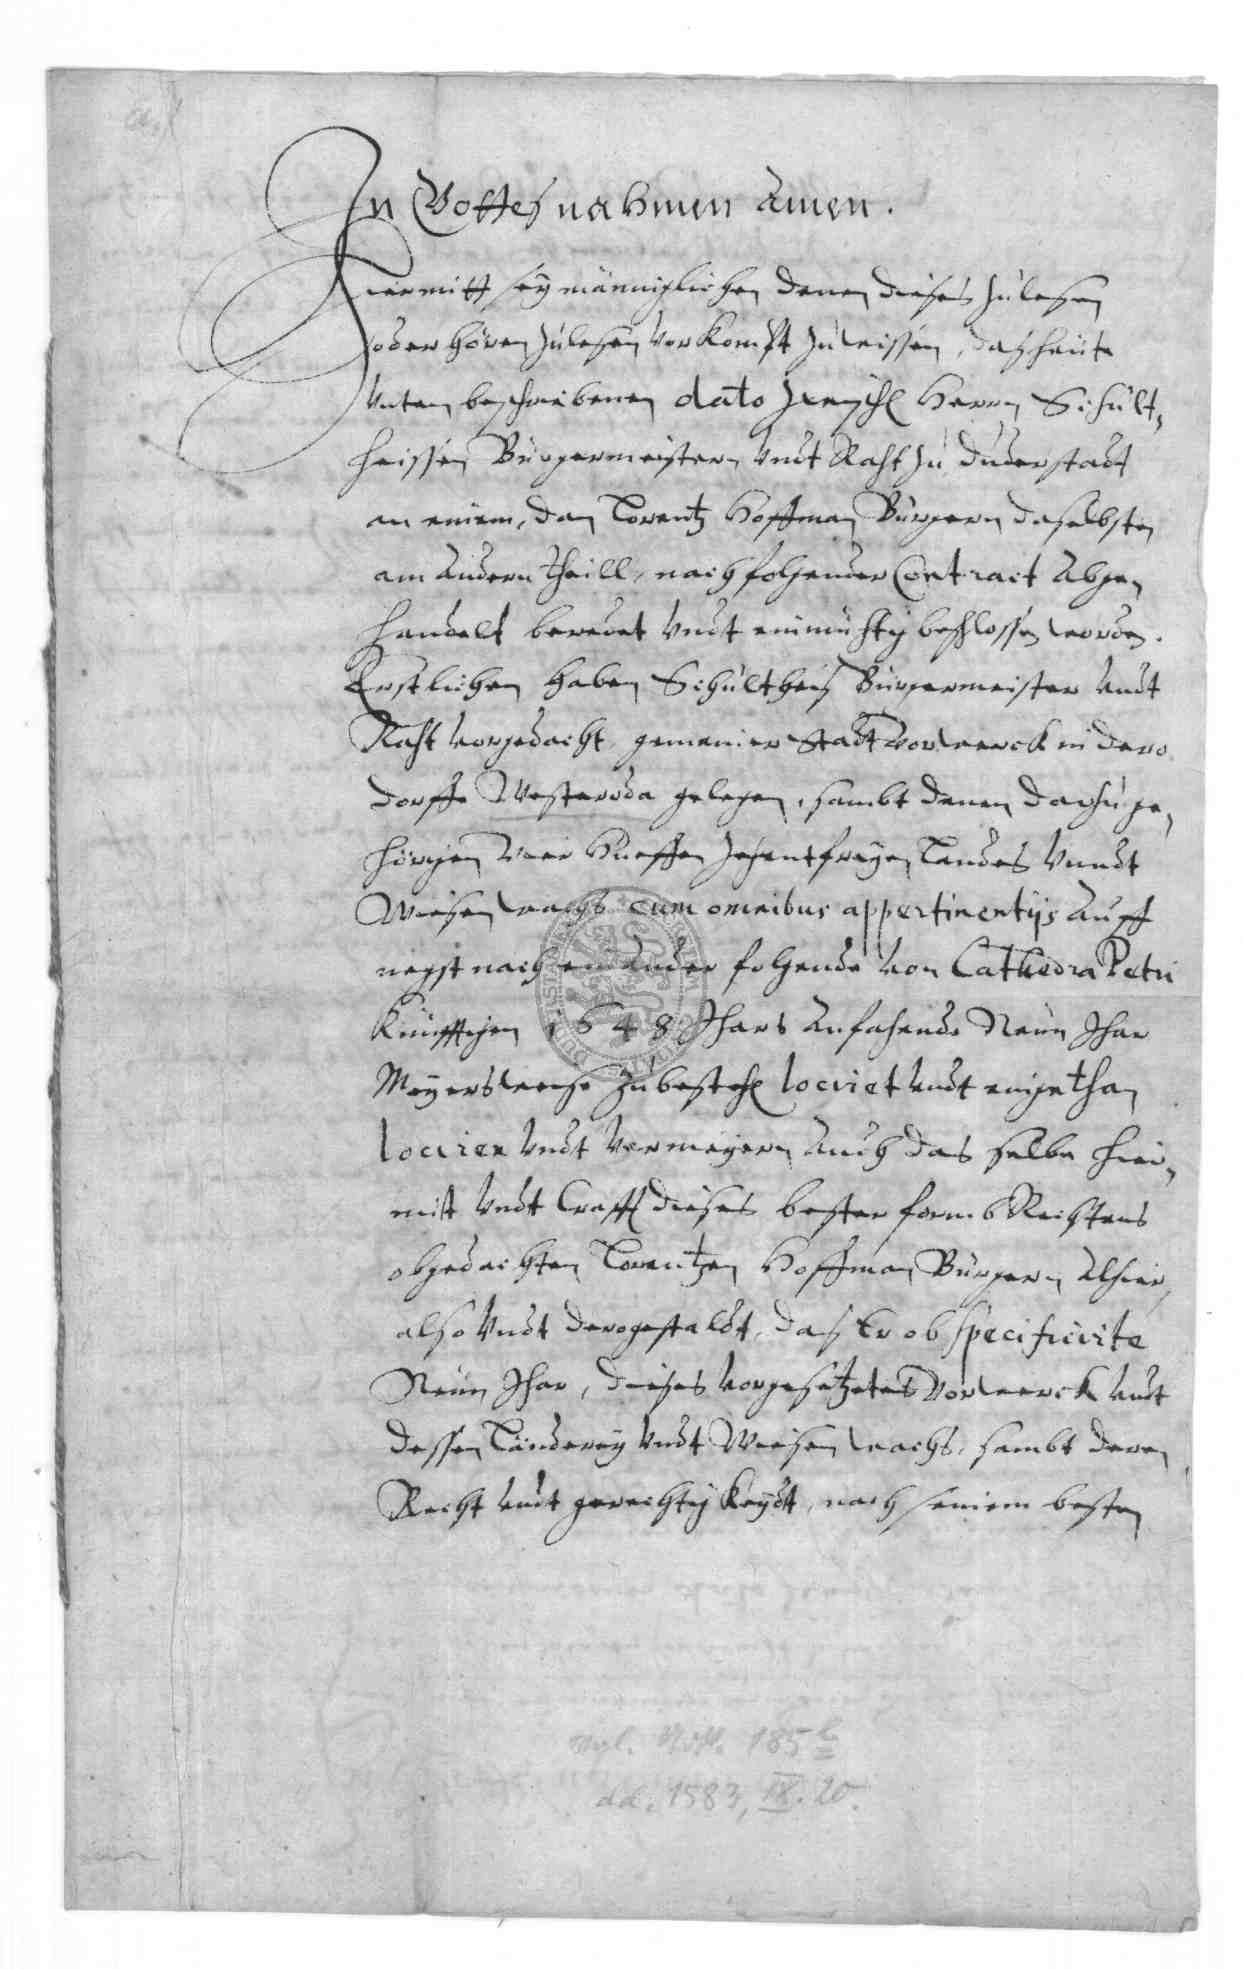 In Gottes nahmen Amen.
Hiermitt sey männiglichen denen dieses zulesen
oder hören zulesen vorkompt zuwissen, das heüte
unten beschriebenen dato zwischen Herrn Schült,
heissen Bürgermeistern undt Raht zu Duderstadt
an einem, dan Lorentz Hoffman Bürgern daselbsten
am andern theill, nachfolgender Contract abge,
handelt beredet undt einmühtig beschlossen worden.
Erstlichen haben Schültheis Bürgermeister undt
Raht vorgedacht, gemeiner Stadt Vorwerck in dero
dorffe Westeroda gelegen, sambt denen darzu ge,
hörigen vier Hueffen zehentfreyen Landes unndt
Wiesenwachs cum omnibus appertinentijs auff
negst nach einander folgende von Cathedra Petri
künfftigen 1648 Jhars anfahende Neun Jhar
Meyersweise zubestehen lociret undt eingethan
lociren undt vermeyern auch das selbe hier,
mitt undt krafft dieses bester form Rechtens
obgedachten Lorentzen Hoffman Bürgern alhier,
also undt dergestaldt, das er ob specificirte
Neun Jhar, dieses vorgesetztes Vorwerck undt
dessen Länderey undt Wiesenwachs, sambt deren
Recht undt gerechtigkeydt, nach seinem besten
vgl. 185
dd. 1583, IX. 20.